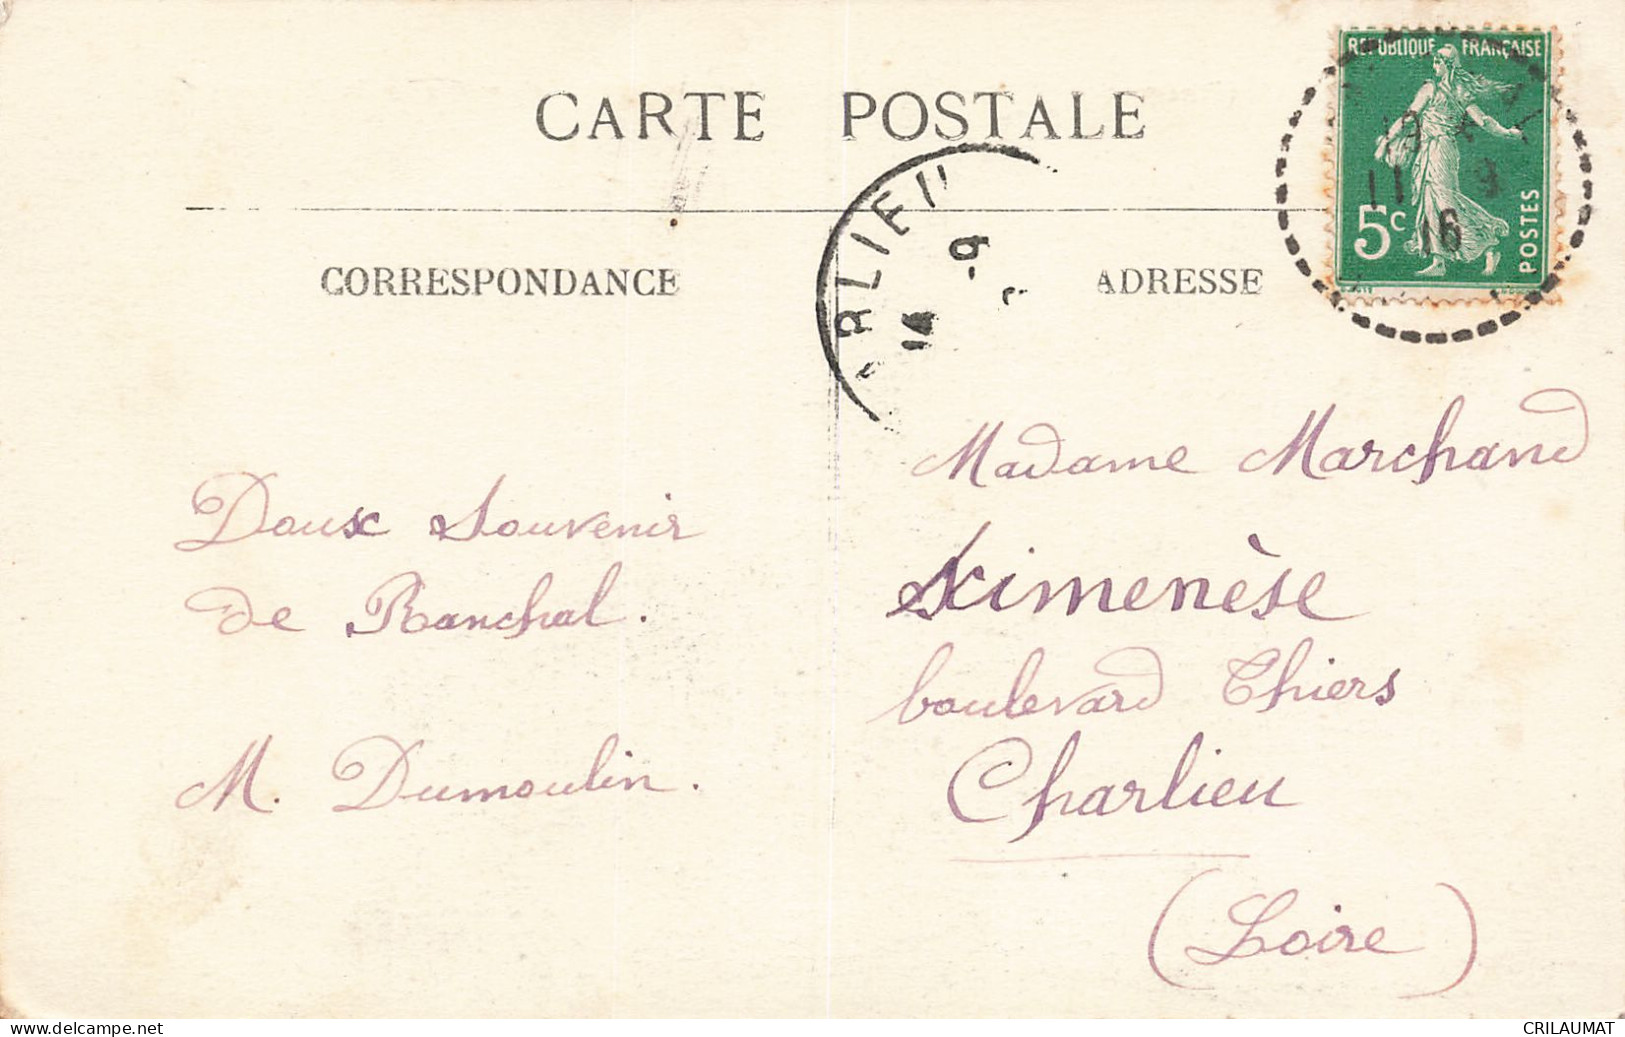 CARTE POSTALE
CORRESPONDANCE
ADRESSE
REPUBLIQUE FRANÇAISE
5c
POSTES
19
11 9
16
RLIEU
14 -9
Doux Souvenir
de Ranchal.
M. Dumoulin.
Madame Marchand
Ximenèse
boulevard Thiers
Charlieu
(Loire)
www.delcampe.net
CRILAUMAT